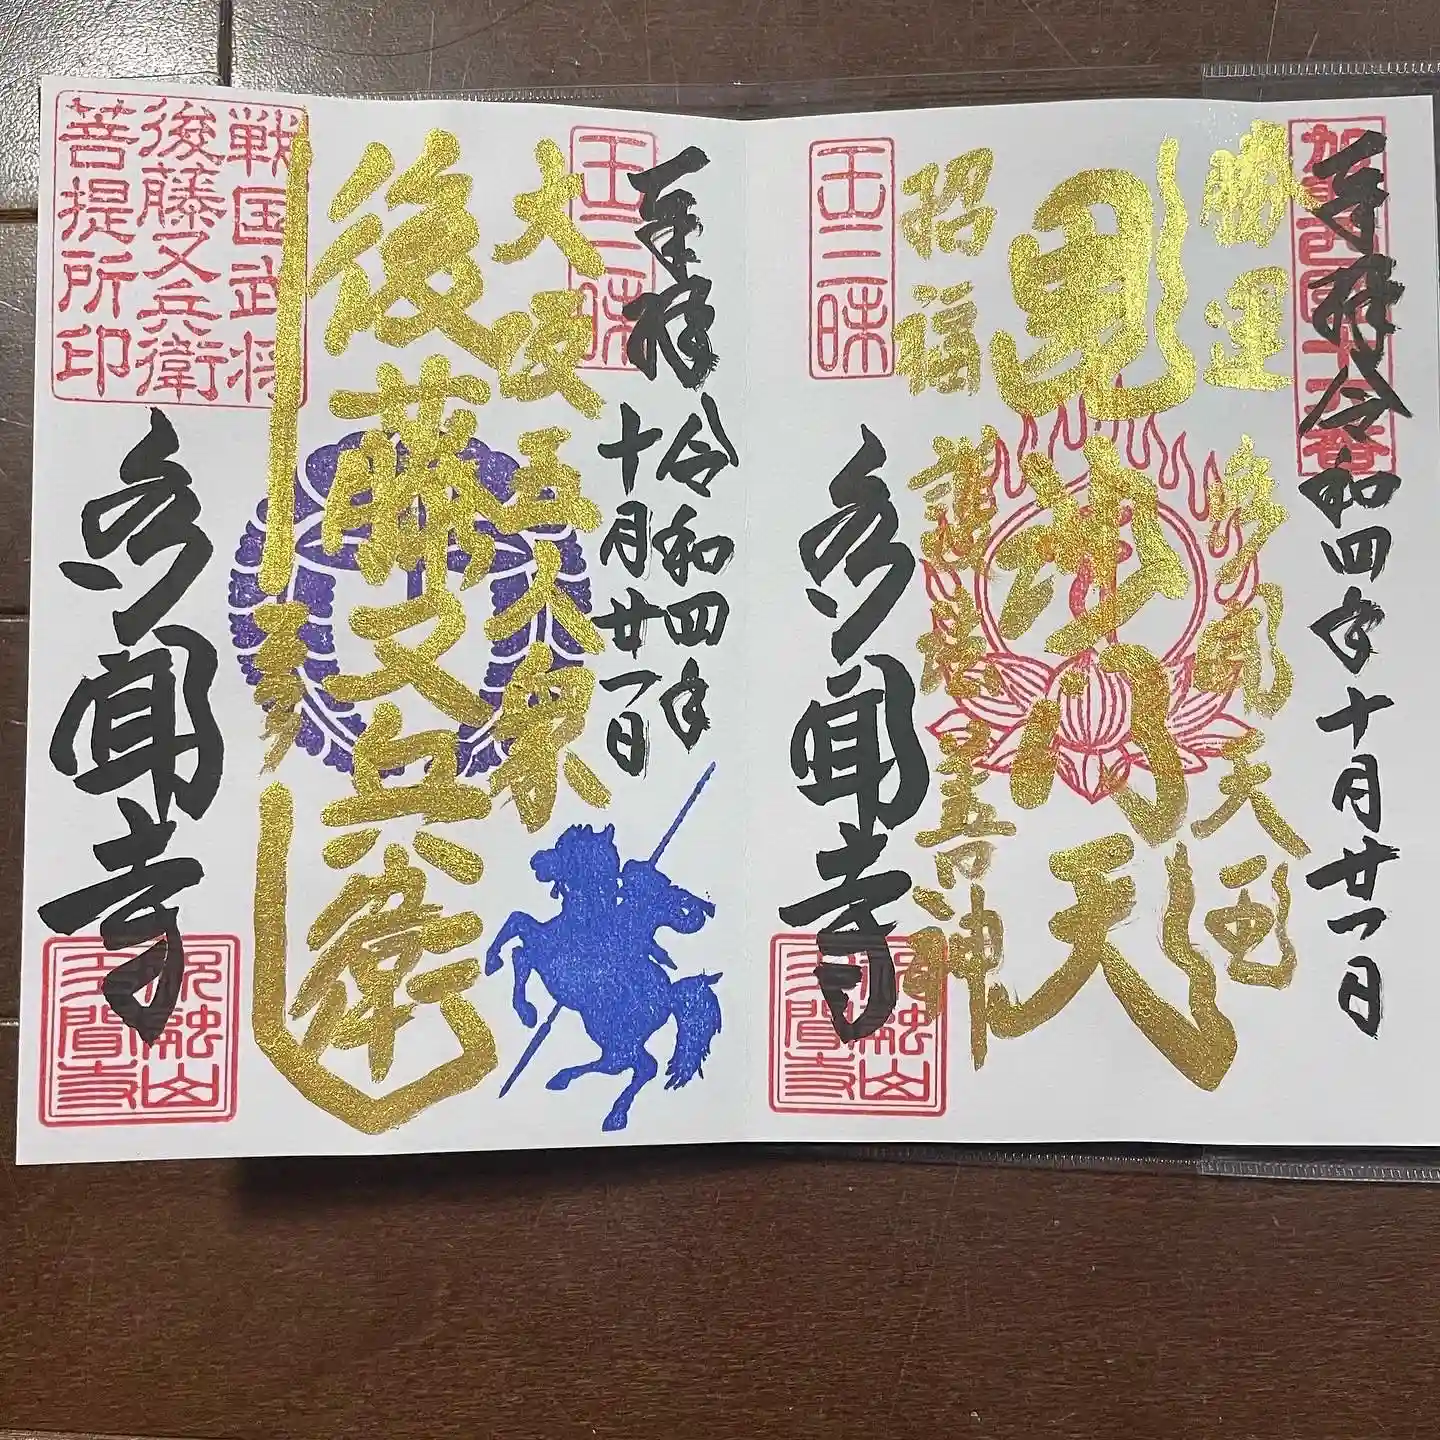 奉拝 令和四年十月廿一日
勝運 多聞天王
毘沙門天
招福
善神
王三昧
多聞寺
奉拝
令和四年
十月廿一日
王三昧
大坂五人衆
後藤又兵衛
戦国武将
後藤又兵衛
菩提所印
多聞寺
多聞寺